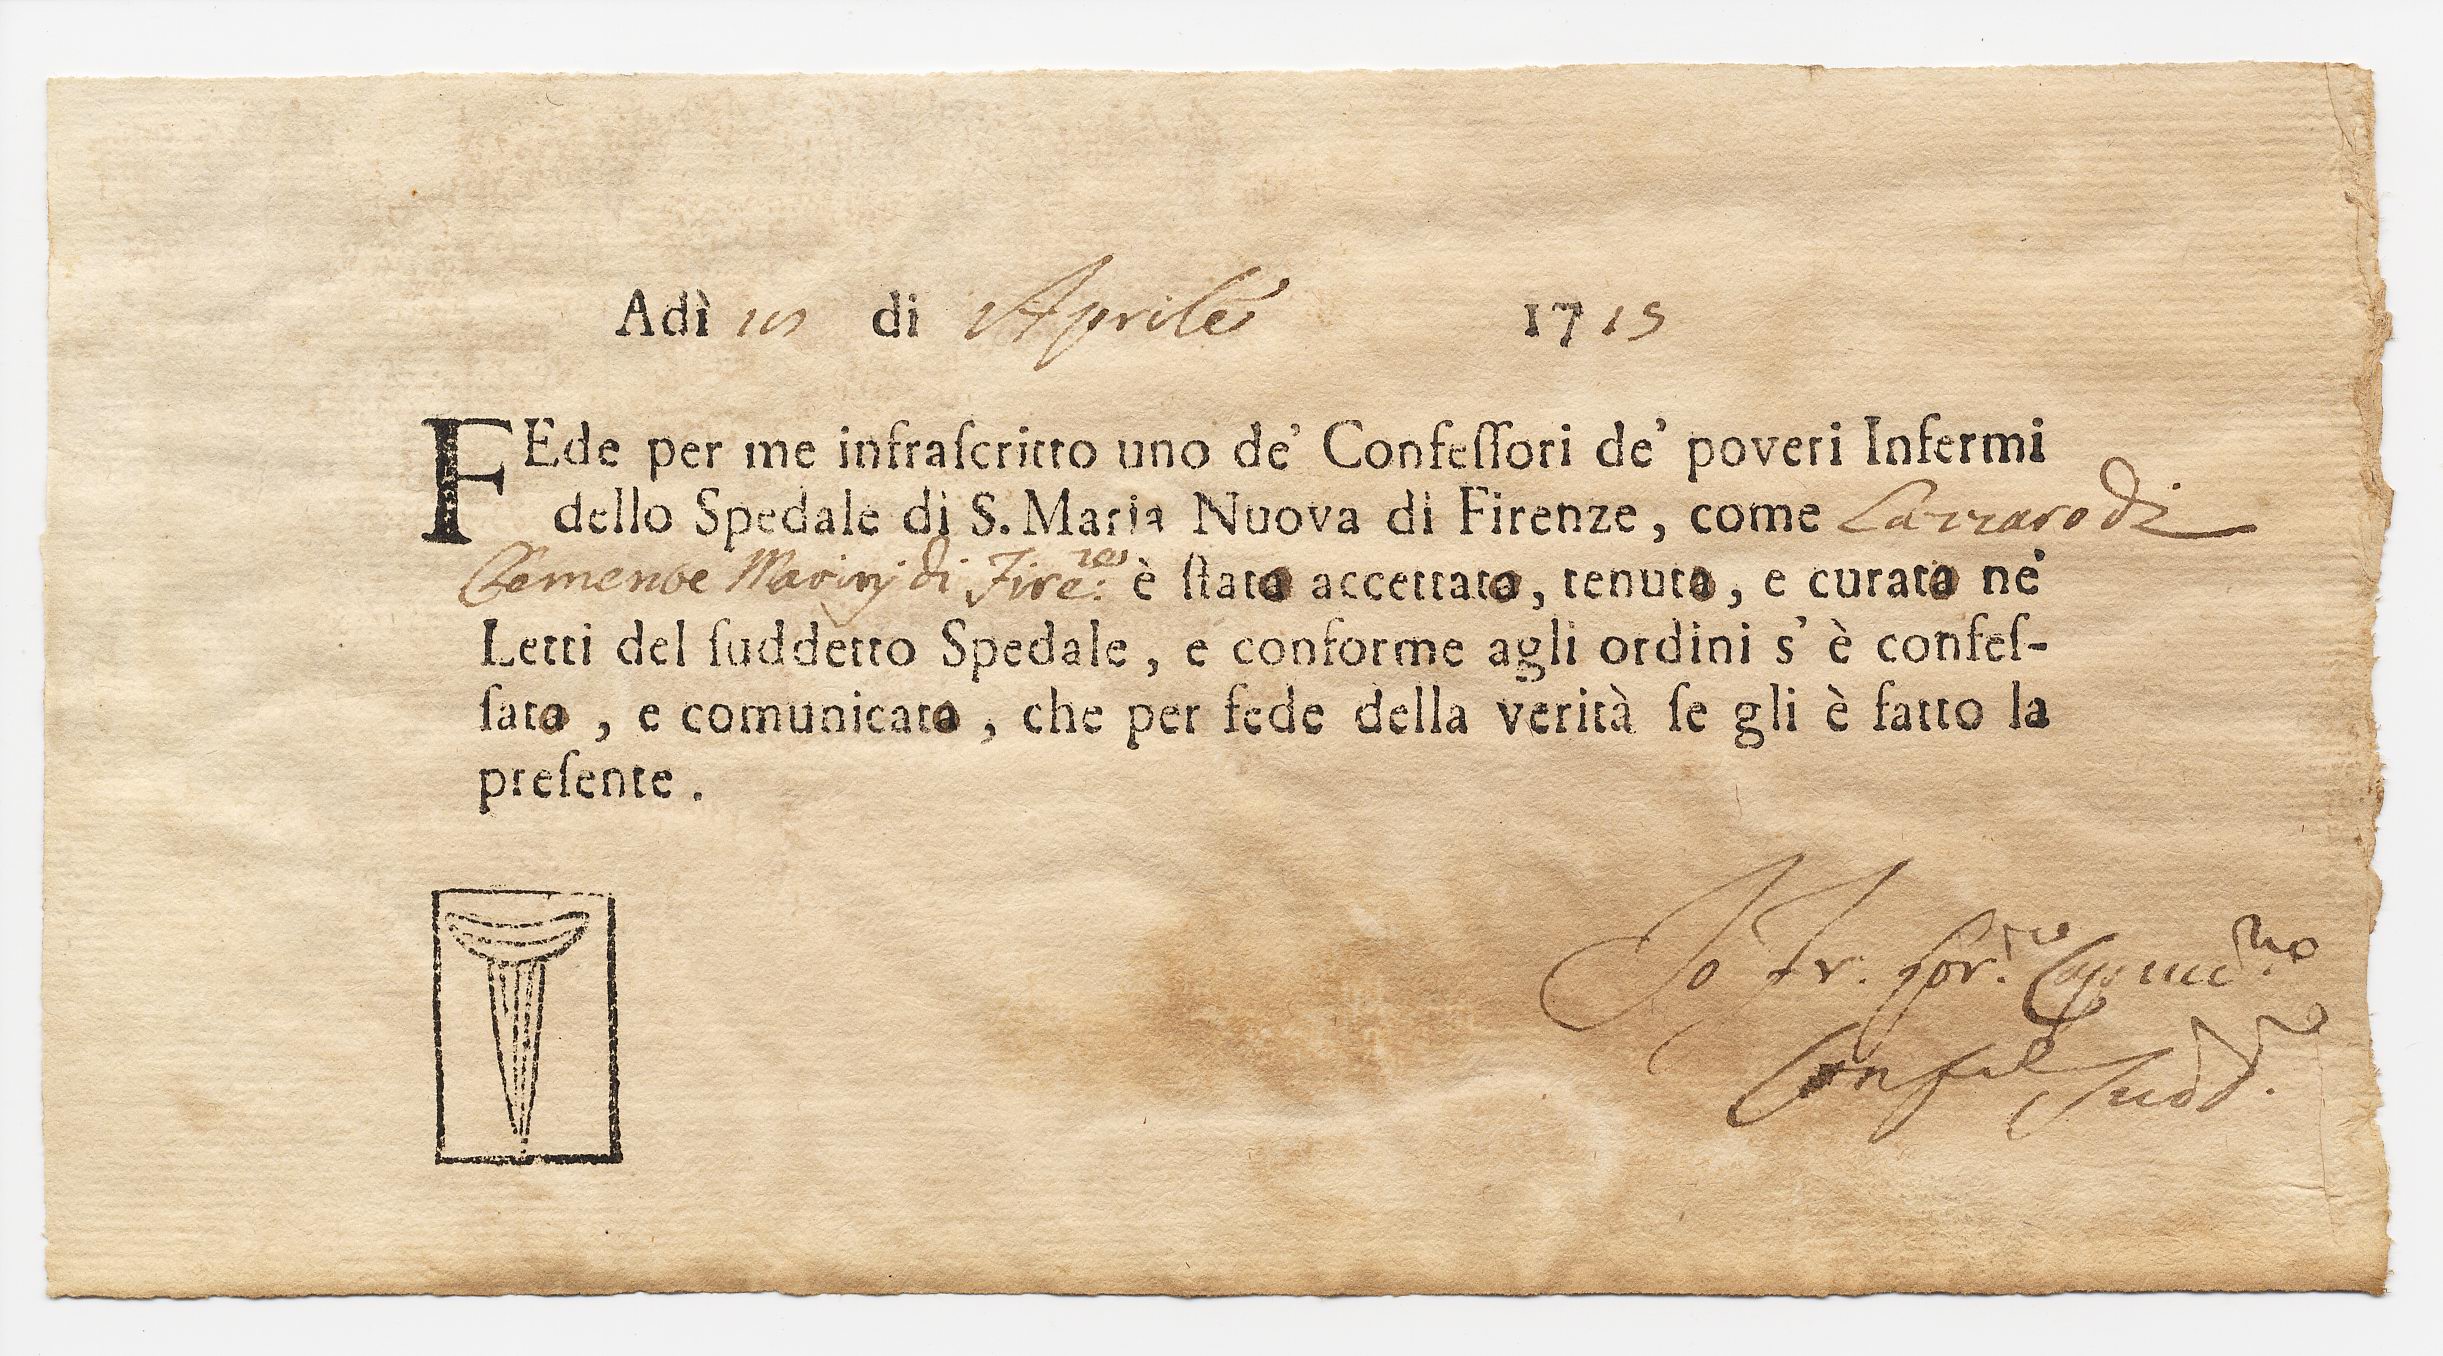 Adì di Aprile 1715
FEde per me infraſcritto uno de' Confeſſori de' poveri Infermi
dello Spedale di S. Maria Nuova di Firenze, come Lazzaro di
Clemente Marinj di Fire:ze è ſtato accettato, tenuto, e curato ne'
Letti del ſuddetto Spedale, e conforme agli ordini s' è confeſ-
ſato, e comunicato, che per fede della verità ſe gli è fatto la
preſente.
Io Fr.
Conf.e Sudd.o